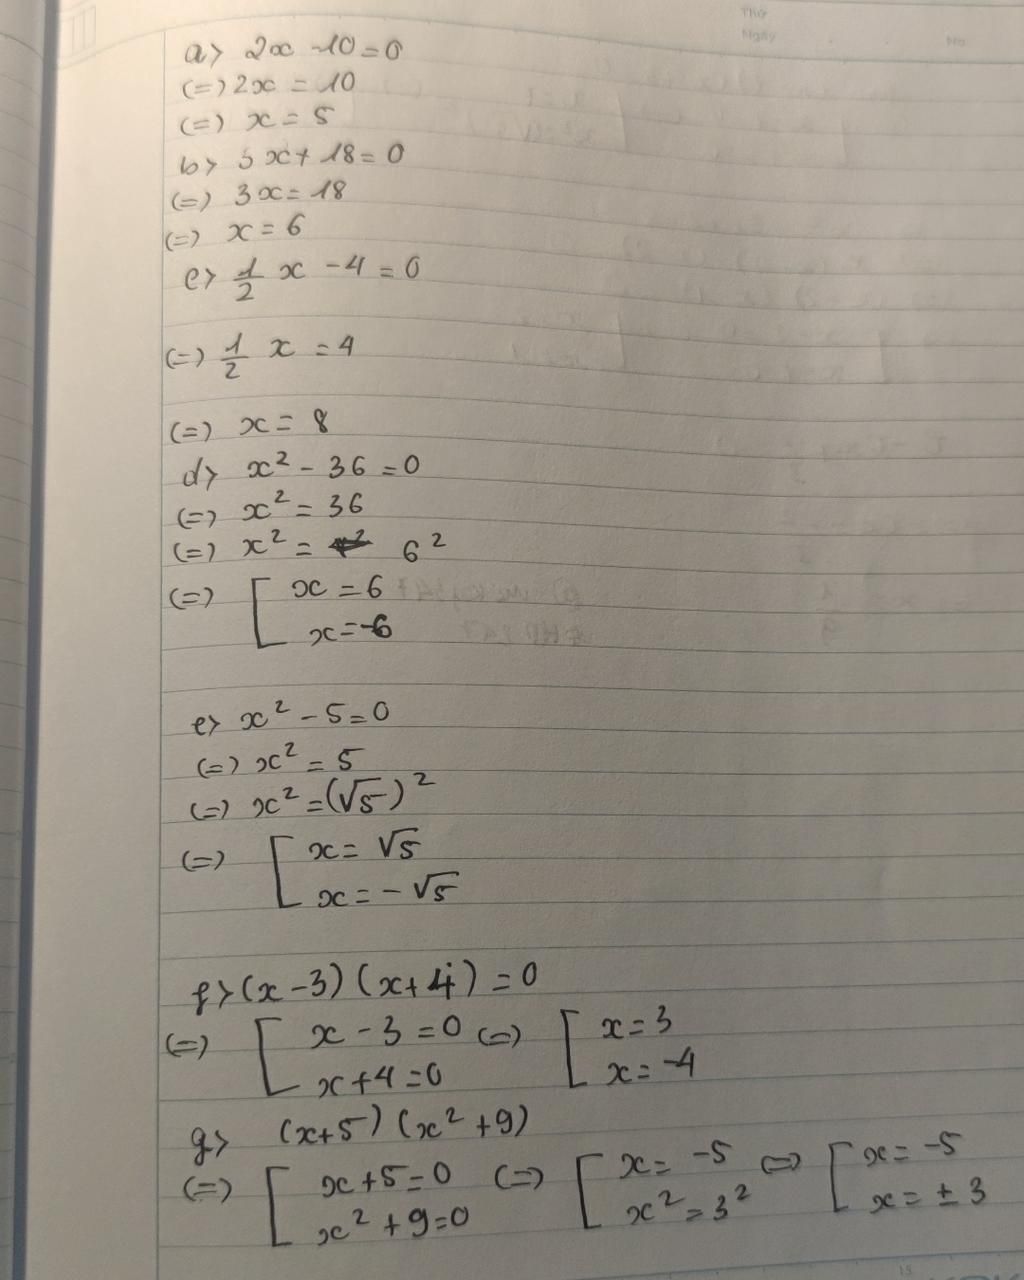 Thứ
Ngày
No.
a> 2x - 10 = 0
(=) 2x = 10
(=) x = 5
b> 3x + 18 = 0
(=) 3x = 18
(=) x = 6
c> 1/2 x - 4 = 0
(=) 1/2 x = 4
(=) x = 8
d> x² - 36 = 0
(=) x² = 36
(=) x² = 6²
(=) [ x = 6
x = -6
e> x² - 5 = 0
(=) x² = 5
(=) x² = (√5)²
(=) [ x = √5
x = - √5
f> (x - 3) (x + 4) = 0
(=) [ x - 3 = 0 (=) [ x = 3
x + 4 = 0 x = -4
g> (x + 5) (x² + 9)
(=) [ x + 5 = 0 (=) [ x = -5 (=) [ x = -5
x² + 9 = 0 x² = 3² x = ± 3